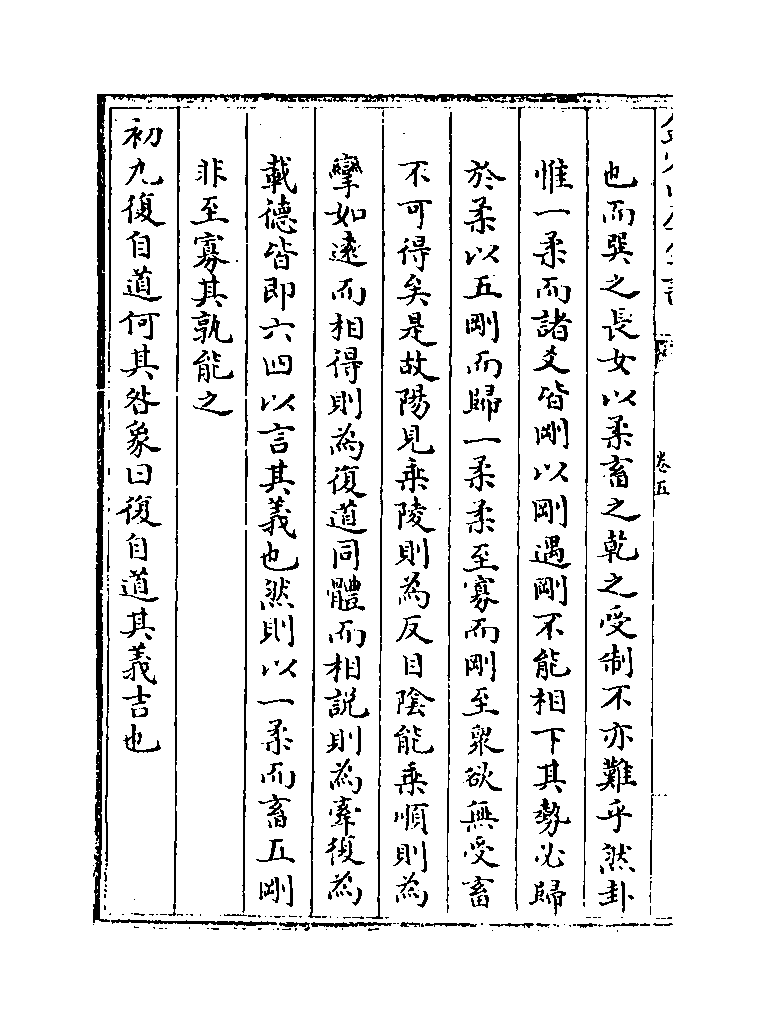 卷五
也而巽之長女以柔畜之乾之受制不亦難乎然卦
惟一柔而諸爻皆剛以剛遇剛不能相下其勢必歸
於柔以五剛而歸一柔柔至寡而剛至衆欲無受畜
不可得矣是故陽見乘陵則為反目陰能乘順則為
攣如遠而相得則為復道同體而相説則為牽復為
載德皆即六四以言其義也然則以一柔而畜五剛
非至寡其孰能之
初九復自道何其咎象曰復自道其義吉也